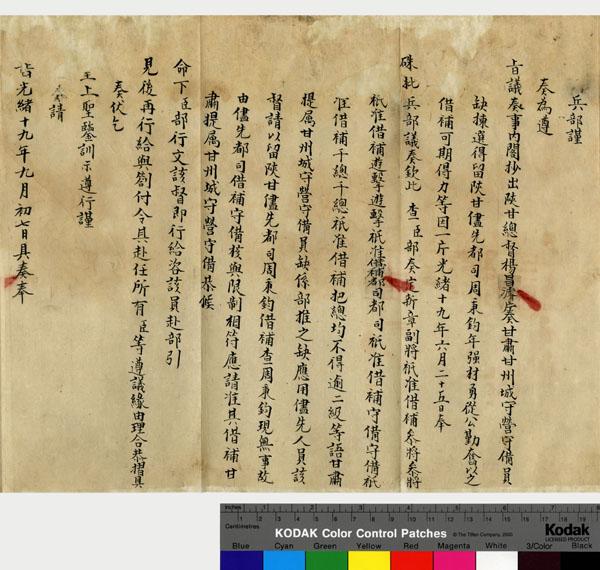 兵部謹
奏為遵
旨議奏事內閣抄出陝甘總督楊昌濬奏甘肅甘州城守營守備員
缺揀選得留陝甘儘先都司周東鈞年强材勇從公勤奮以之
借補可期得力等因一片光緒十九年六月二十五日奉
硃批兵部議奏欽此 查臣部奏定新章副將祇准借補參將參將
祇准借補遊擊遊擊祇准借補都司都司祇准借補守備守備祇
准借補千總千總祇准借補把總均不得逾二級等語甘肅
提属甘州城守營守備員缺係部推之缺應用儘先人員該
督請以留陝甘儘先都司周東鈞借補查周東鈞現無事故
由儘先都司借補守備核與限制相符應請准其借補甘
肅提属甘州城守營守備恭候
命下臣部行文該督即行給咨該員赴部引
見後再行給與劄付令其赴任所有臣等遵議緣由理合恭摺具
奏伏乞
王上聖鑒訓示遵行謹
請
旨光緒十九年九月初七日具奏奉
inches 1 2 3 4 5 6 7 8
Centimetres 1 2 3 4 5 6 7 8 9 10 11 12 13 14 15 16 17 18 19
KODAK Color Control Patches © The Tiffen Company, 2000 Kodak
LICENSED PRODUCT
Blue Cyan Green Yellow Red Magenta White 3/Color Black